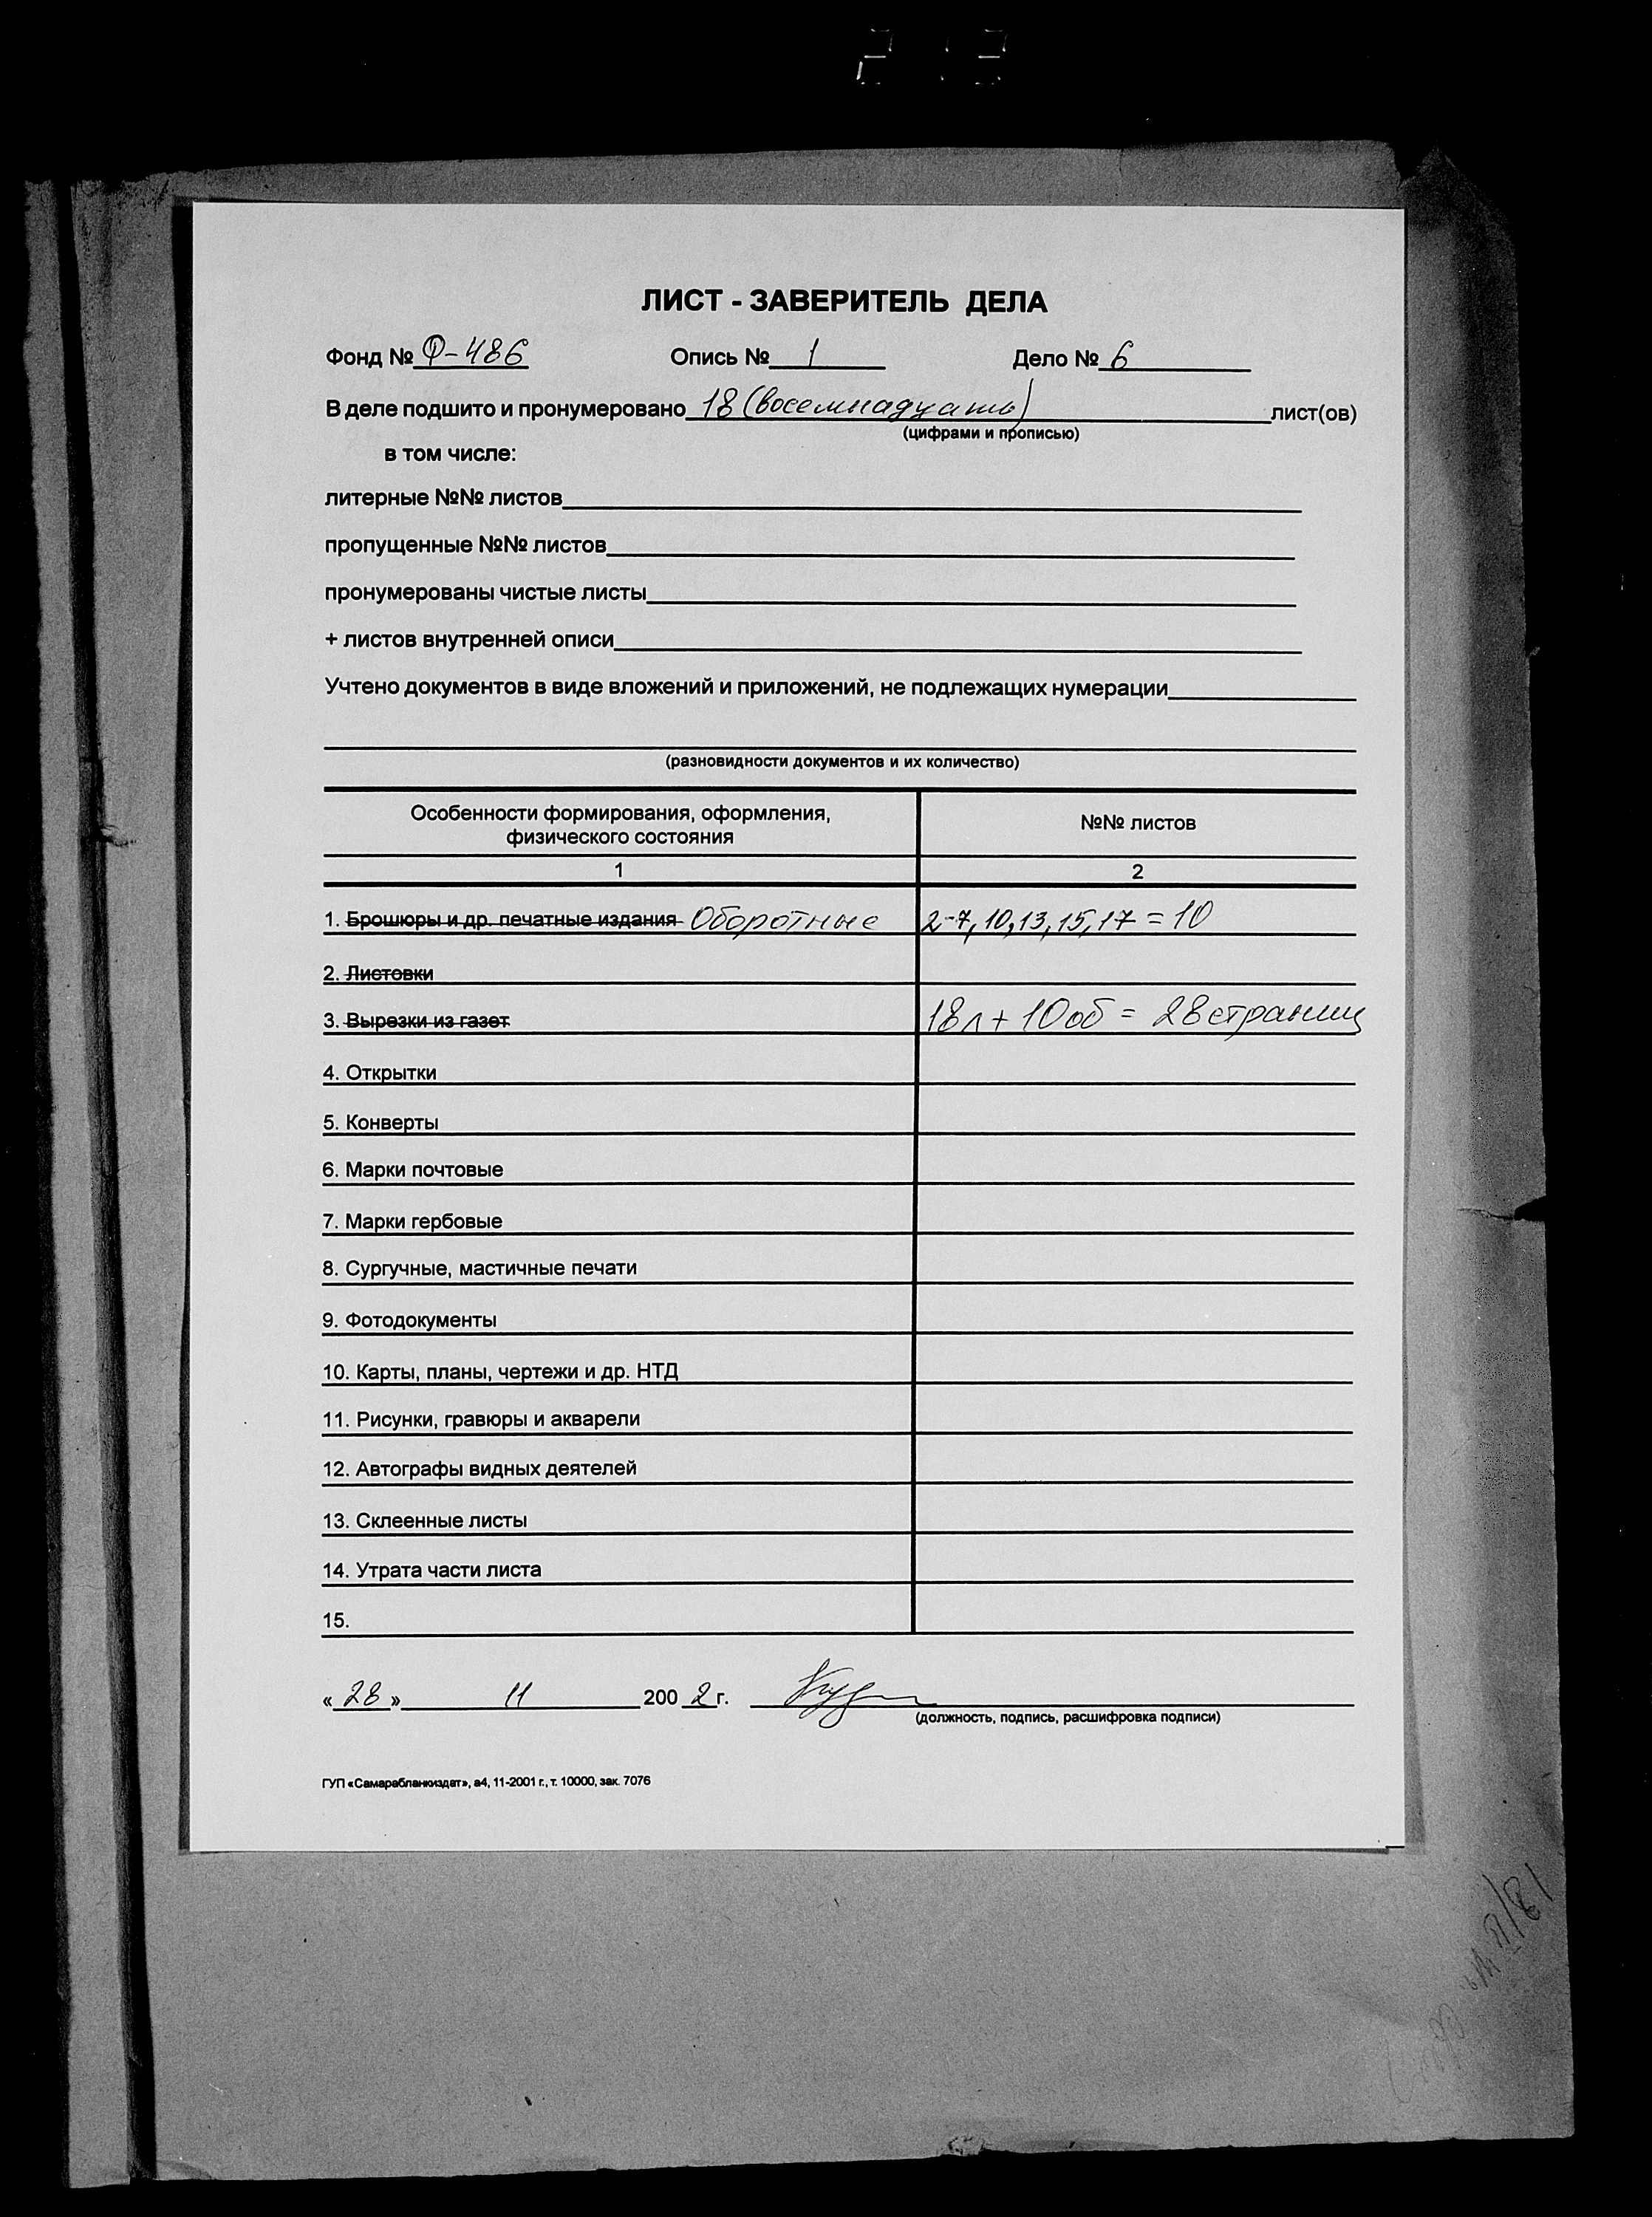 ЛИСТ - ЗАВЕРИТЕЛЬ ДЕЛА
Фонд № Ф-486 Опись № 1 Дело № 6
В деле подшито и пронумеровано 18 (восемнадцать) лист(ов)
(цифрами и прописью)
в том числе:
литерные №№ листов
пропущенные №№ листов
пронумерованы чистые листы
+ листов внутренней описи
Учтено документов в виде вложений и приложений, не подлежащих нумерации
(разновидности документов и их количество)
Особенности формирования, оформления,
физического состояния
№№ листов
1 2
1. Брошюры и др. печатные издания Оборотные 2-7, 10, 13, 15, 17 = 10
2. Листовки
3. Вырезки из газет 18л + 10об = 28 страниц
4. Открытки
5. Конверты
6. Марки почтовые
7. Марки гербовые
8. Сургучные, мастичные печати
9. Фотодокументы
10. Карты, планы, чертежи и др. НТД
11. Рисунки, гравюры и акварели
12. Автографы видных деятелей
13. Склеенные листы
14. Утрата части листа
15.
« 28 » 11 200 2 г.
(должность, подпись, расшифровка подписи)
ГУП «Самарабланкиздат», а4, 11-2001 г., т. 10000, зак. 7076